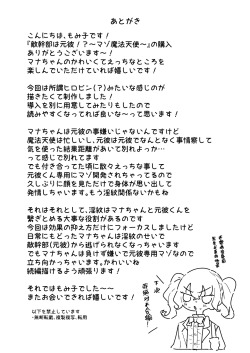 あとがき
こんにちは、もみ子です!
『敵幹部は元彼!?～マゾ魔法天使～』の購入
ありがとうございますー!
マナちゃんのかわいくてえっちなところを
楽しんでいただけていれば嬉しいです!
今回は所謂ヒロピン(?)みたいな感じのが
描きたくて制作しました!
導入を別に用意してみたりもしたので
読みやすくなってれば良いなーって思います!
マナちゃんは元彼の事嫌いじゃないんですけど
魔法天使は忙しいし、元彼は元彼でなんとなく事情察して
気を使った結果距離があいて別れよっか…
って感じで別れてます
でも付き合ってた頃に散々えっちな事して
元彼くん専用にマゾ開発されちゃってるので
久しぶりに顔を見ただけで身体が思い出して
発情しちゃいます。もう淫紋関係ないかもね
それはそれとして、淫紋はマナちゃんと元彼くんを
繋ぎとめる大事な役割があるのです
今回は効果の抑え方だけにフォーカスしましたけど
日常にもどったマナちゃんは淫紋のせいで
敵幹部(元彼)から逃げられなくなっちゃいます
でもマナちゃんは負けず嫌いで元彼専用マゾなので
万更でもなさそう…かもしれないね
続編描けるよう頑張ります!
それではもみ子でしたー
またお会いできれば嬉しいです!
以下を禁止しています
・無断転載、複製複写、転用